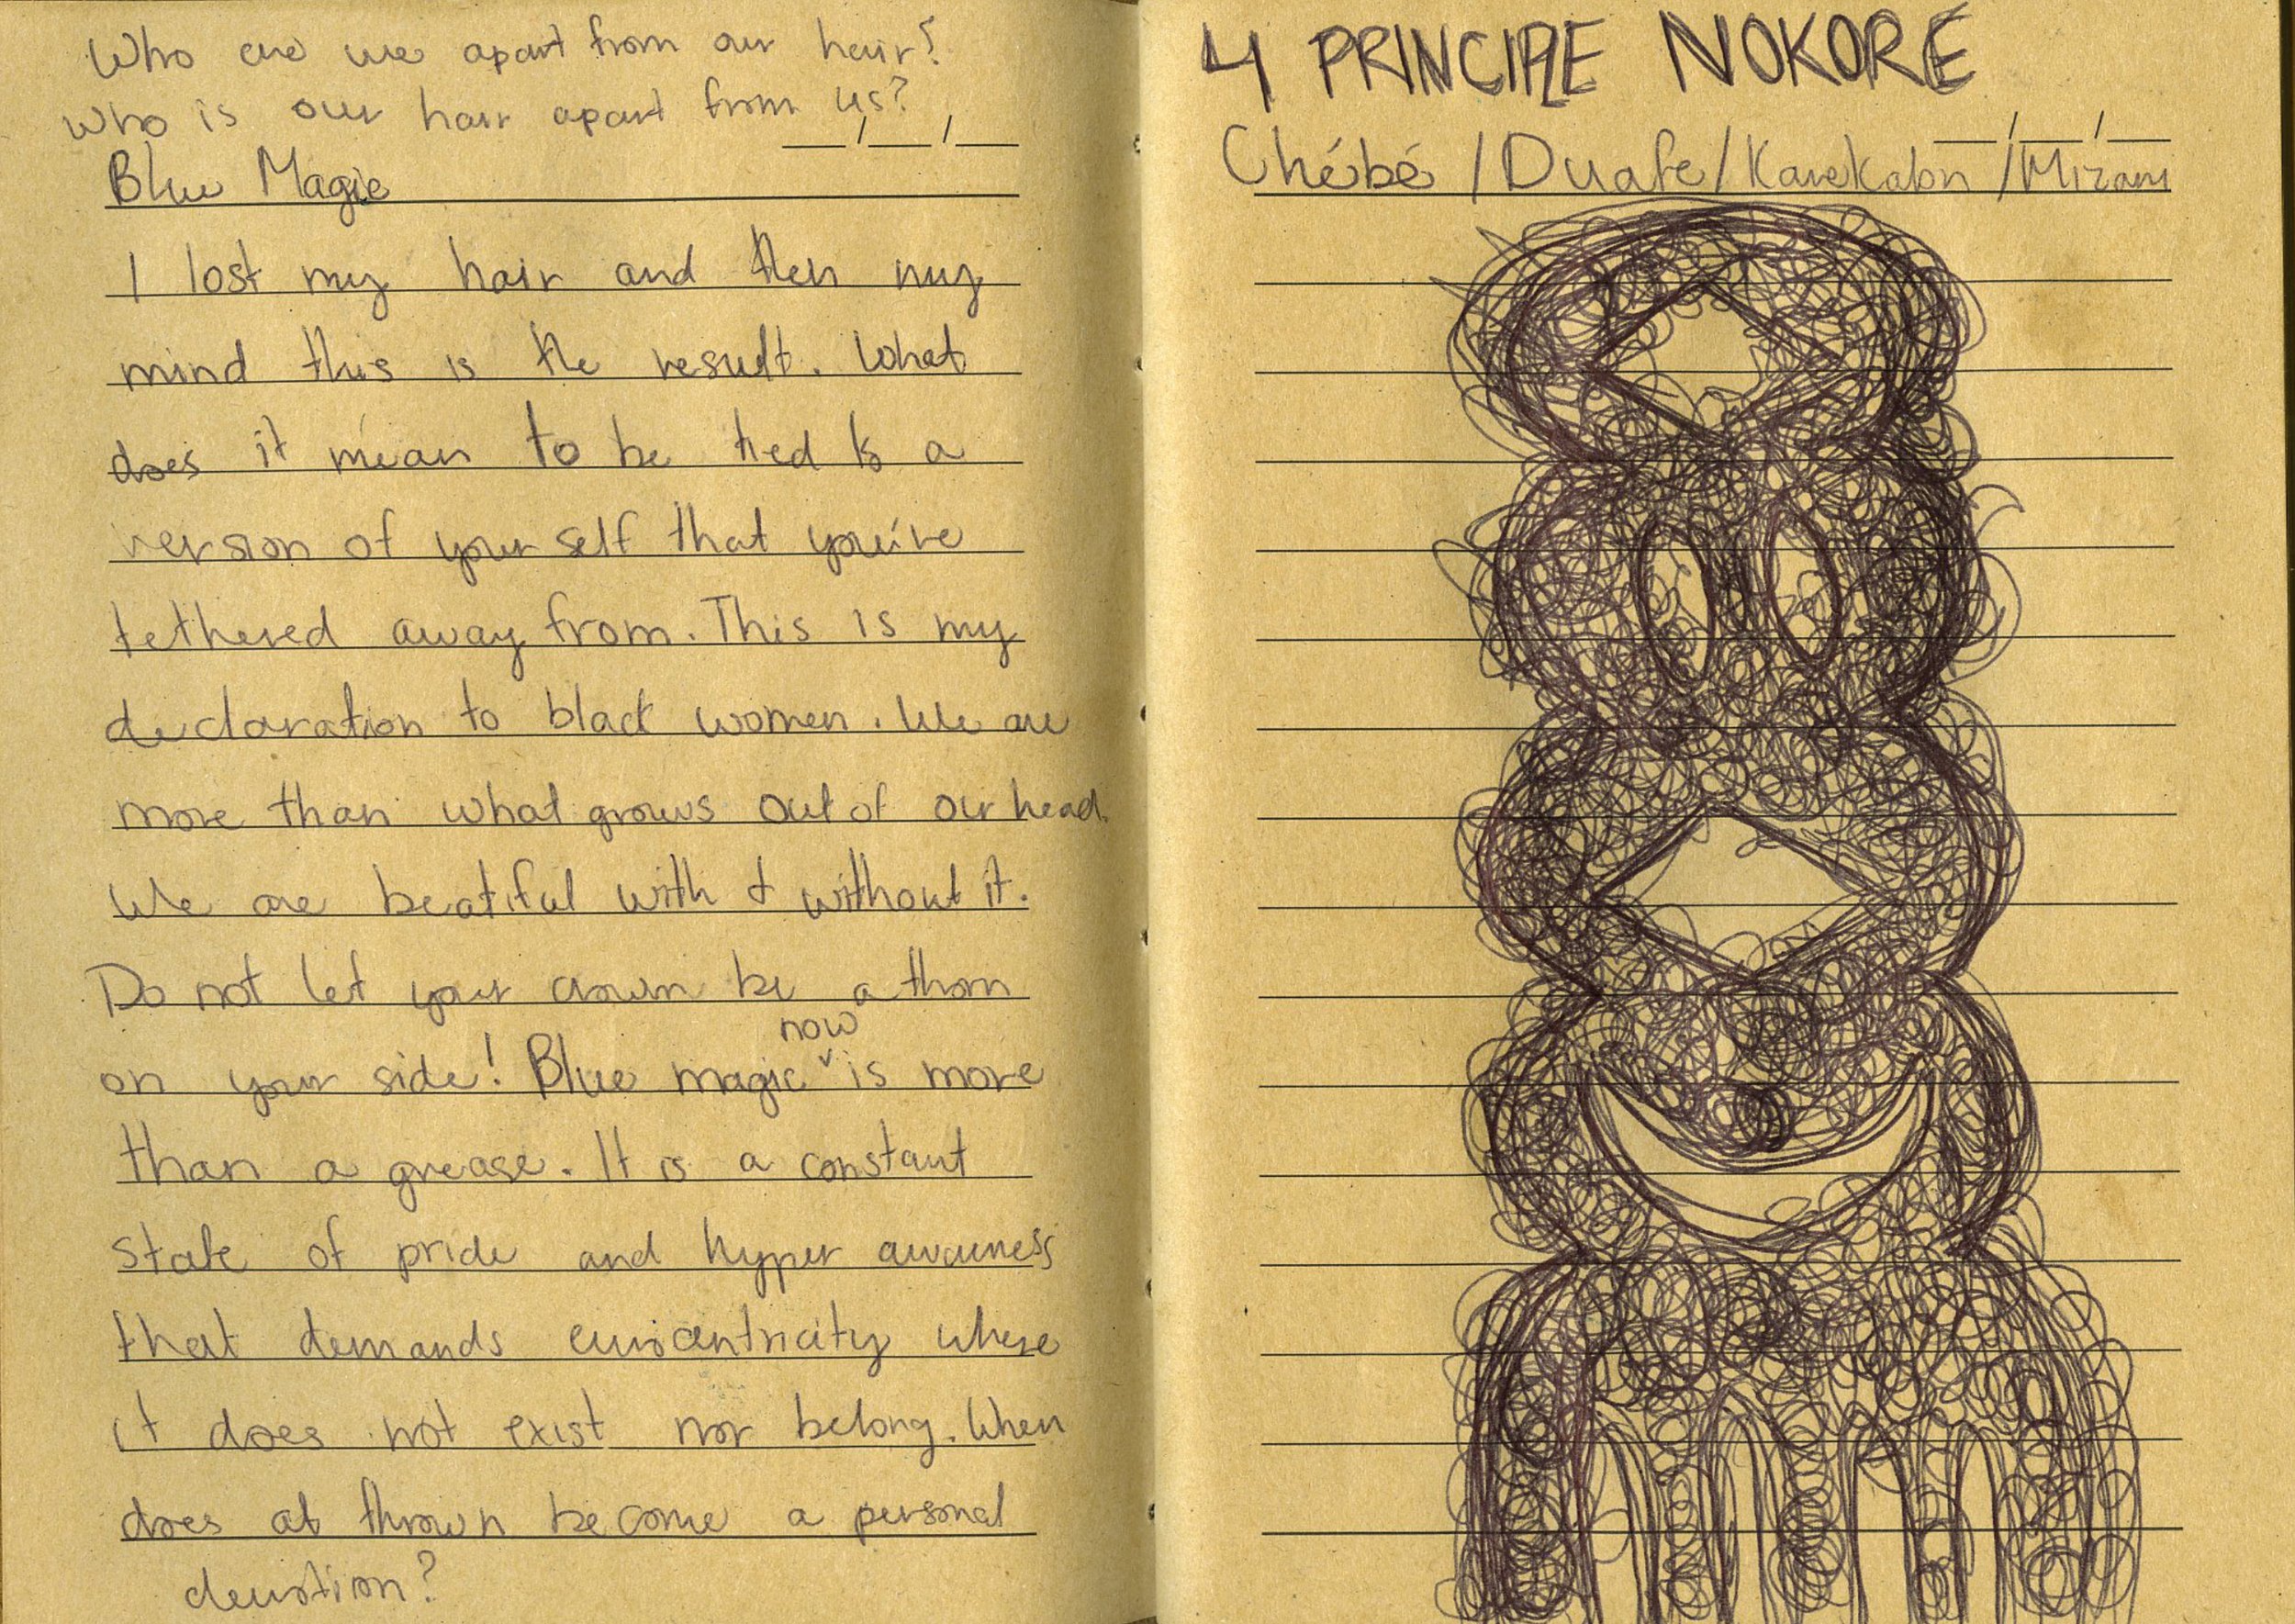 Who are we apart from our hair?
Who is our hair apart from us?
Blue Magic
I lost my hair and then my
mind this is the result. What
does it mean to be tied to a
version of yourself that you've
tethered away from. This is my
declaration to black women. We are
more than what grows out of our head.
We are beatiful with & without it.
Do not let your crown be a thorn
now
on your side! Blue magic is more
than a grease. It is a constant
state of pride and hyper awareness
that demands eurocentricity where
it does not exist nor belong. When
does at thrown become a personal
devotion?
4 PRINCIPLE NOKORE
Chébé / Duafe / Karekabn / Mizani